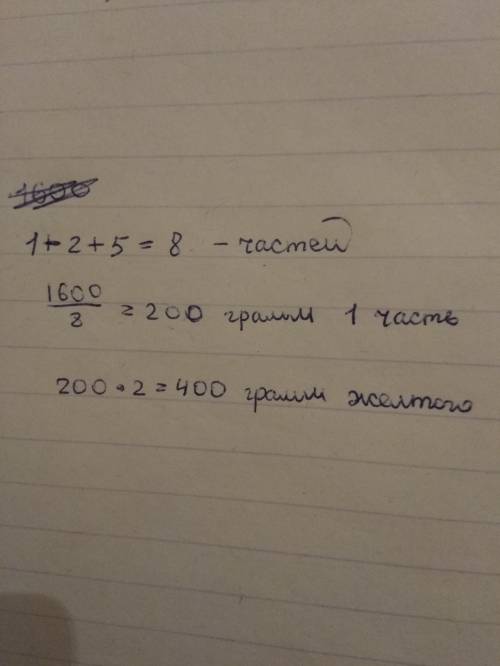 1600
1+2+5=8 - частей
1600/8 = 200 грамм 1 часть
200•2=400 грамм желтого